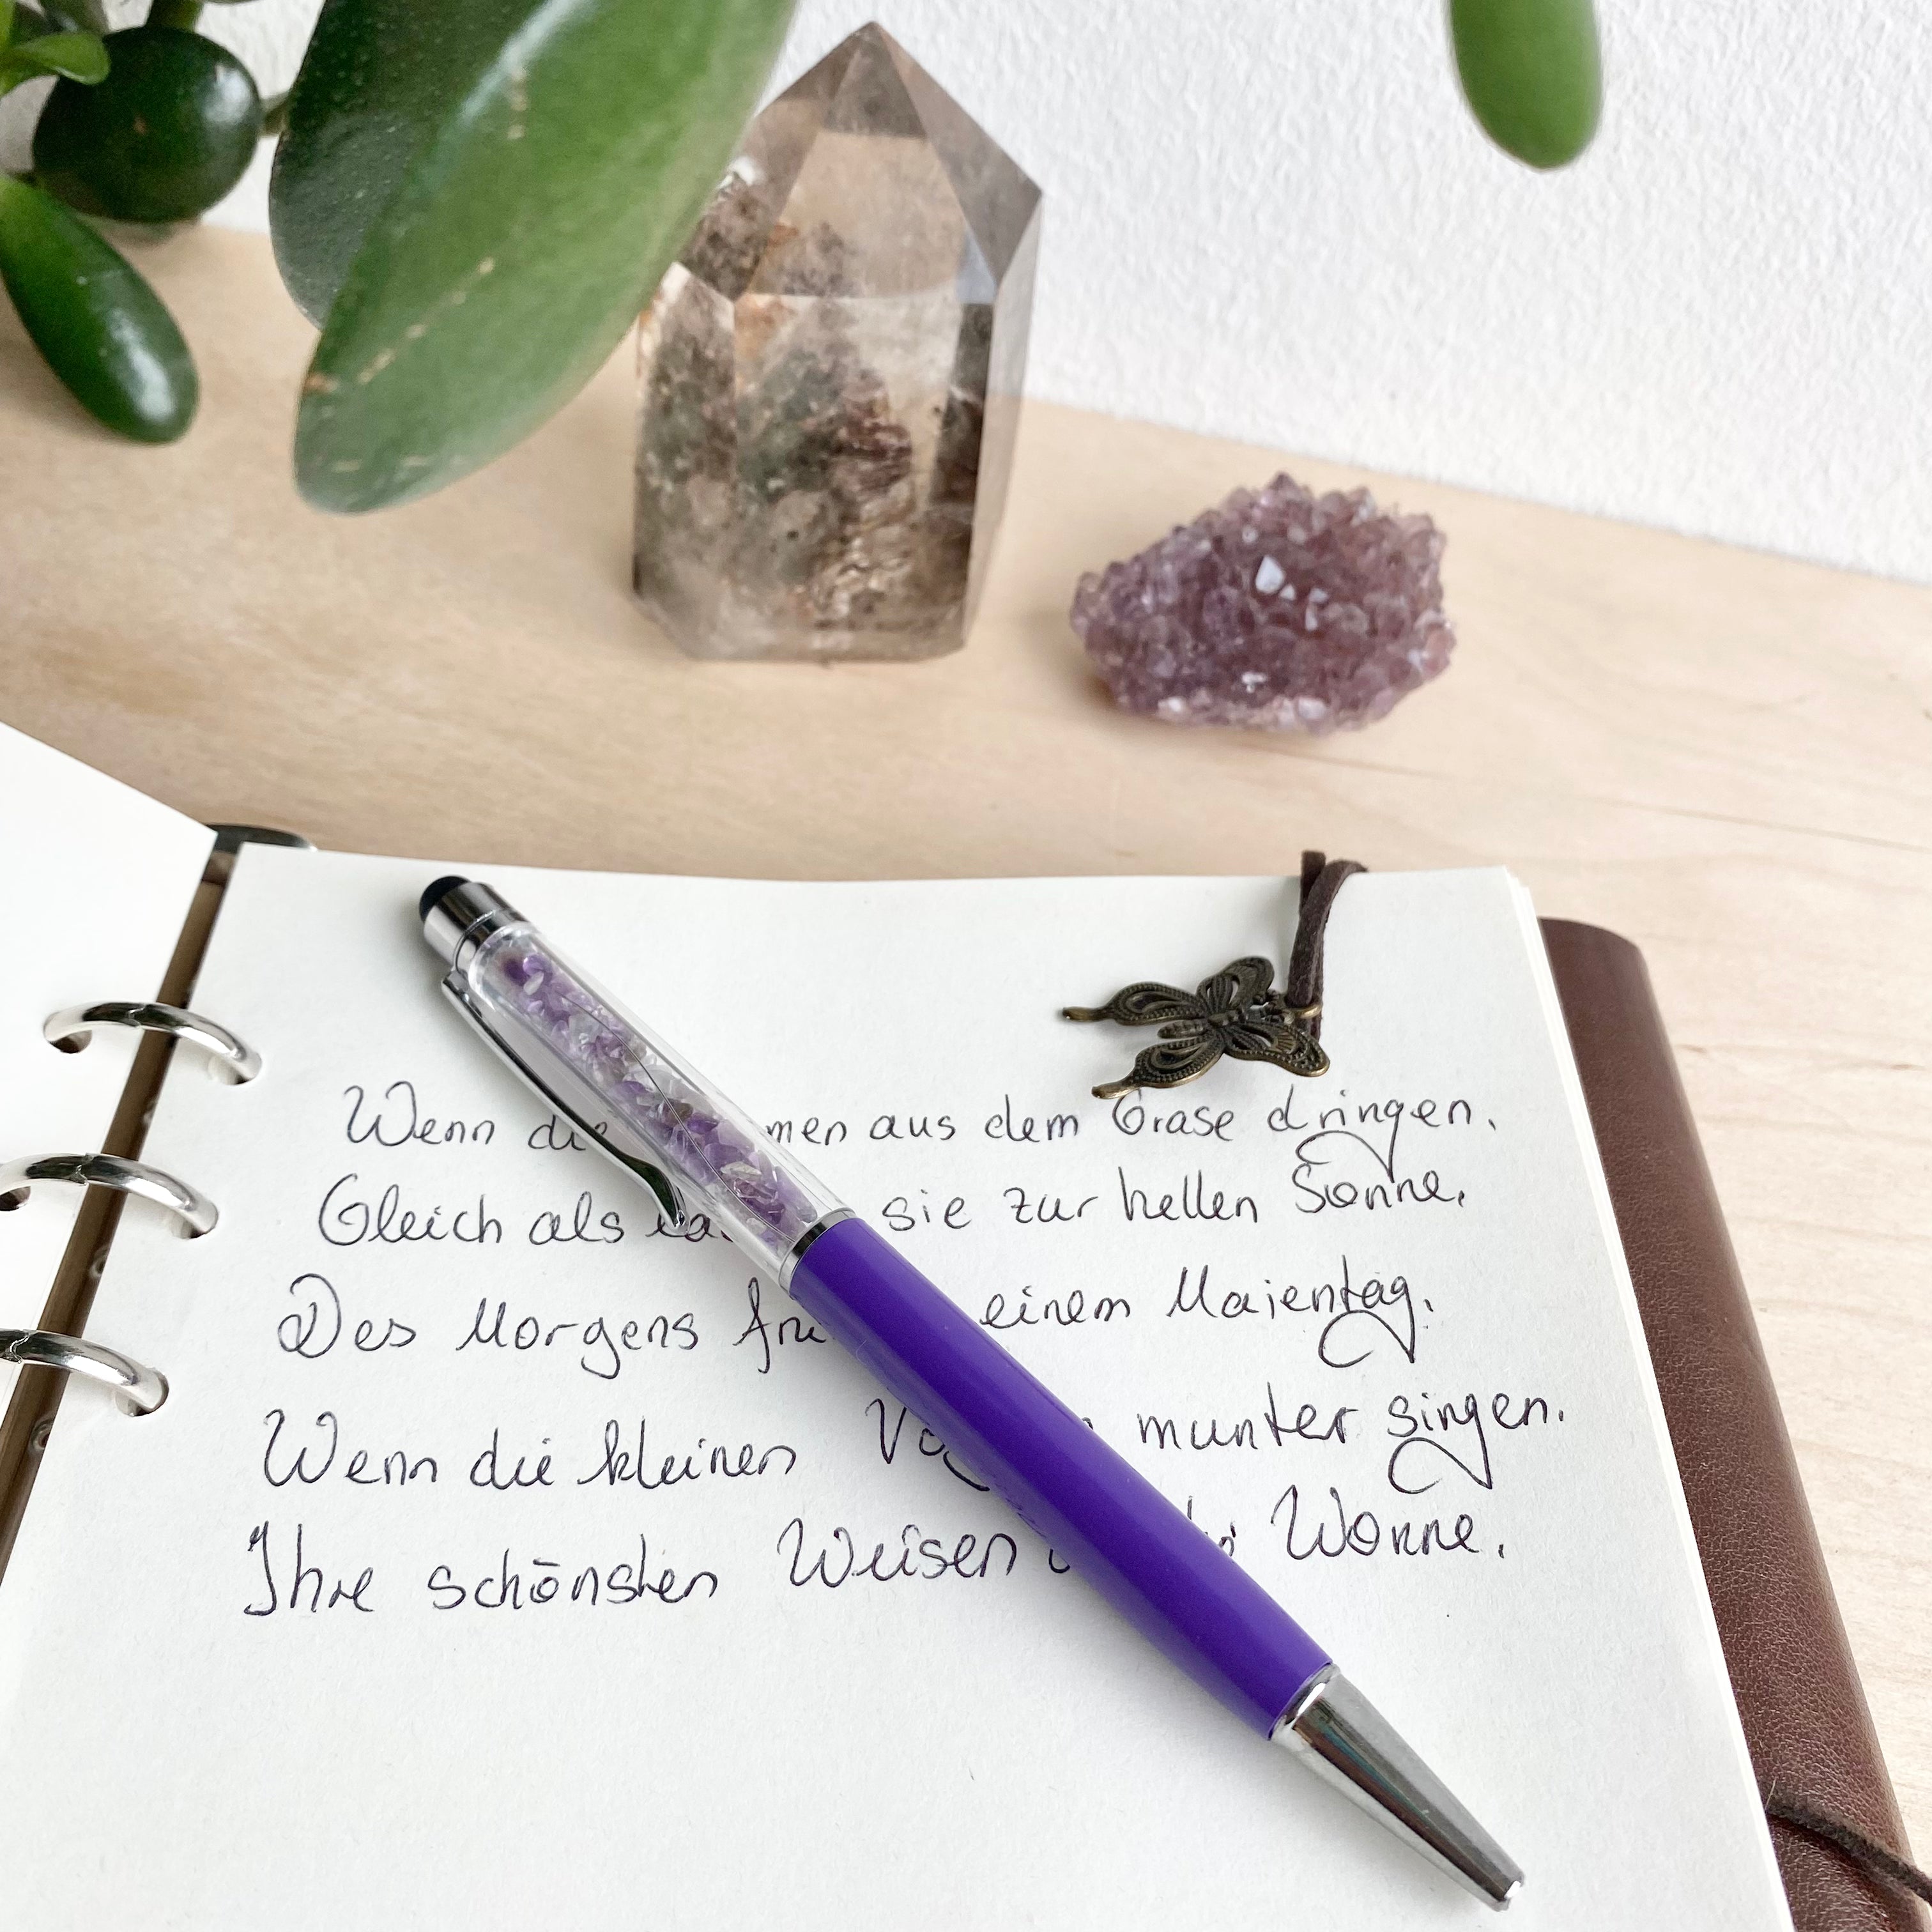 Wenn die aus dem Grase dringen.
Gleich als sie zur hellen Sonne,
Des Morgens einem Maientag.
Wenn die kleinen munter singen.
Ihre schönsten Weisen Wonne.